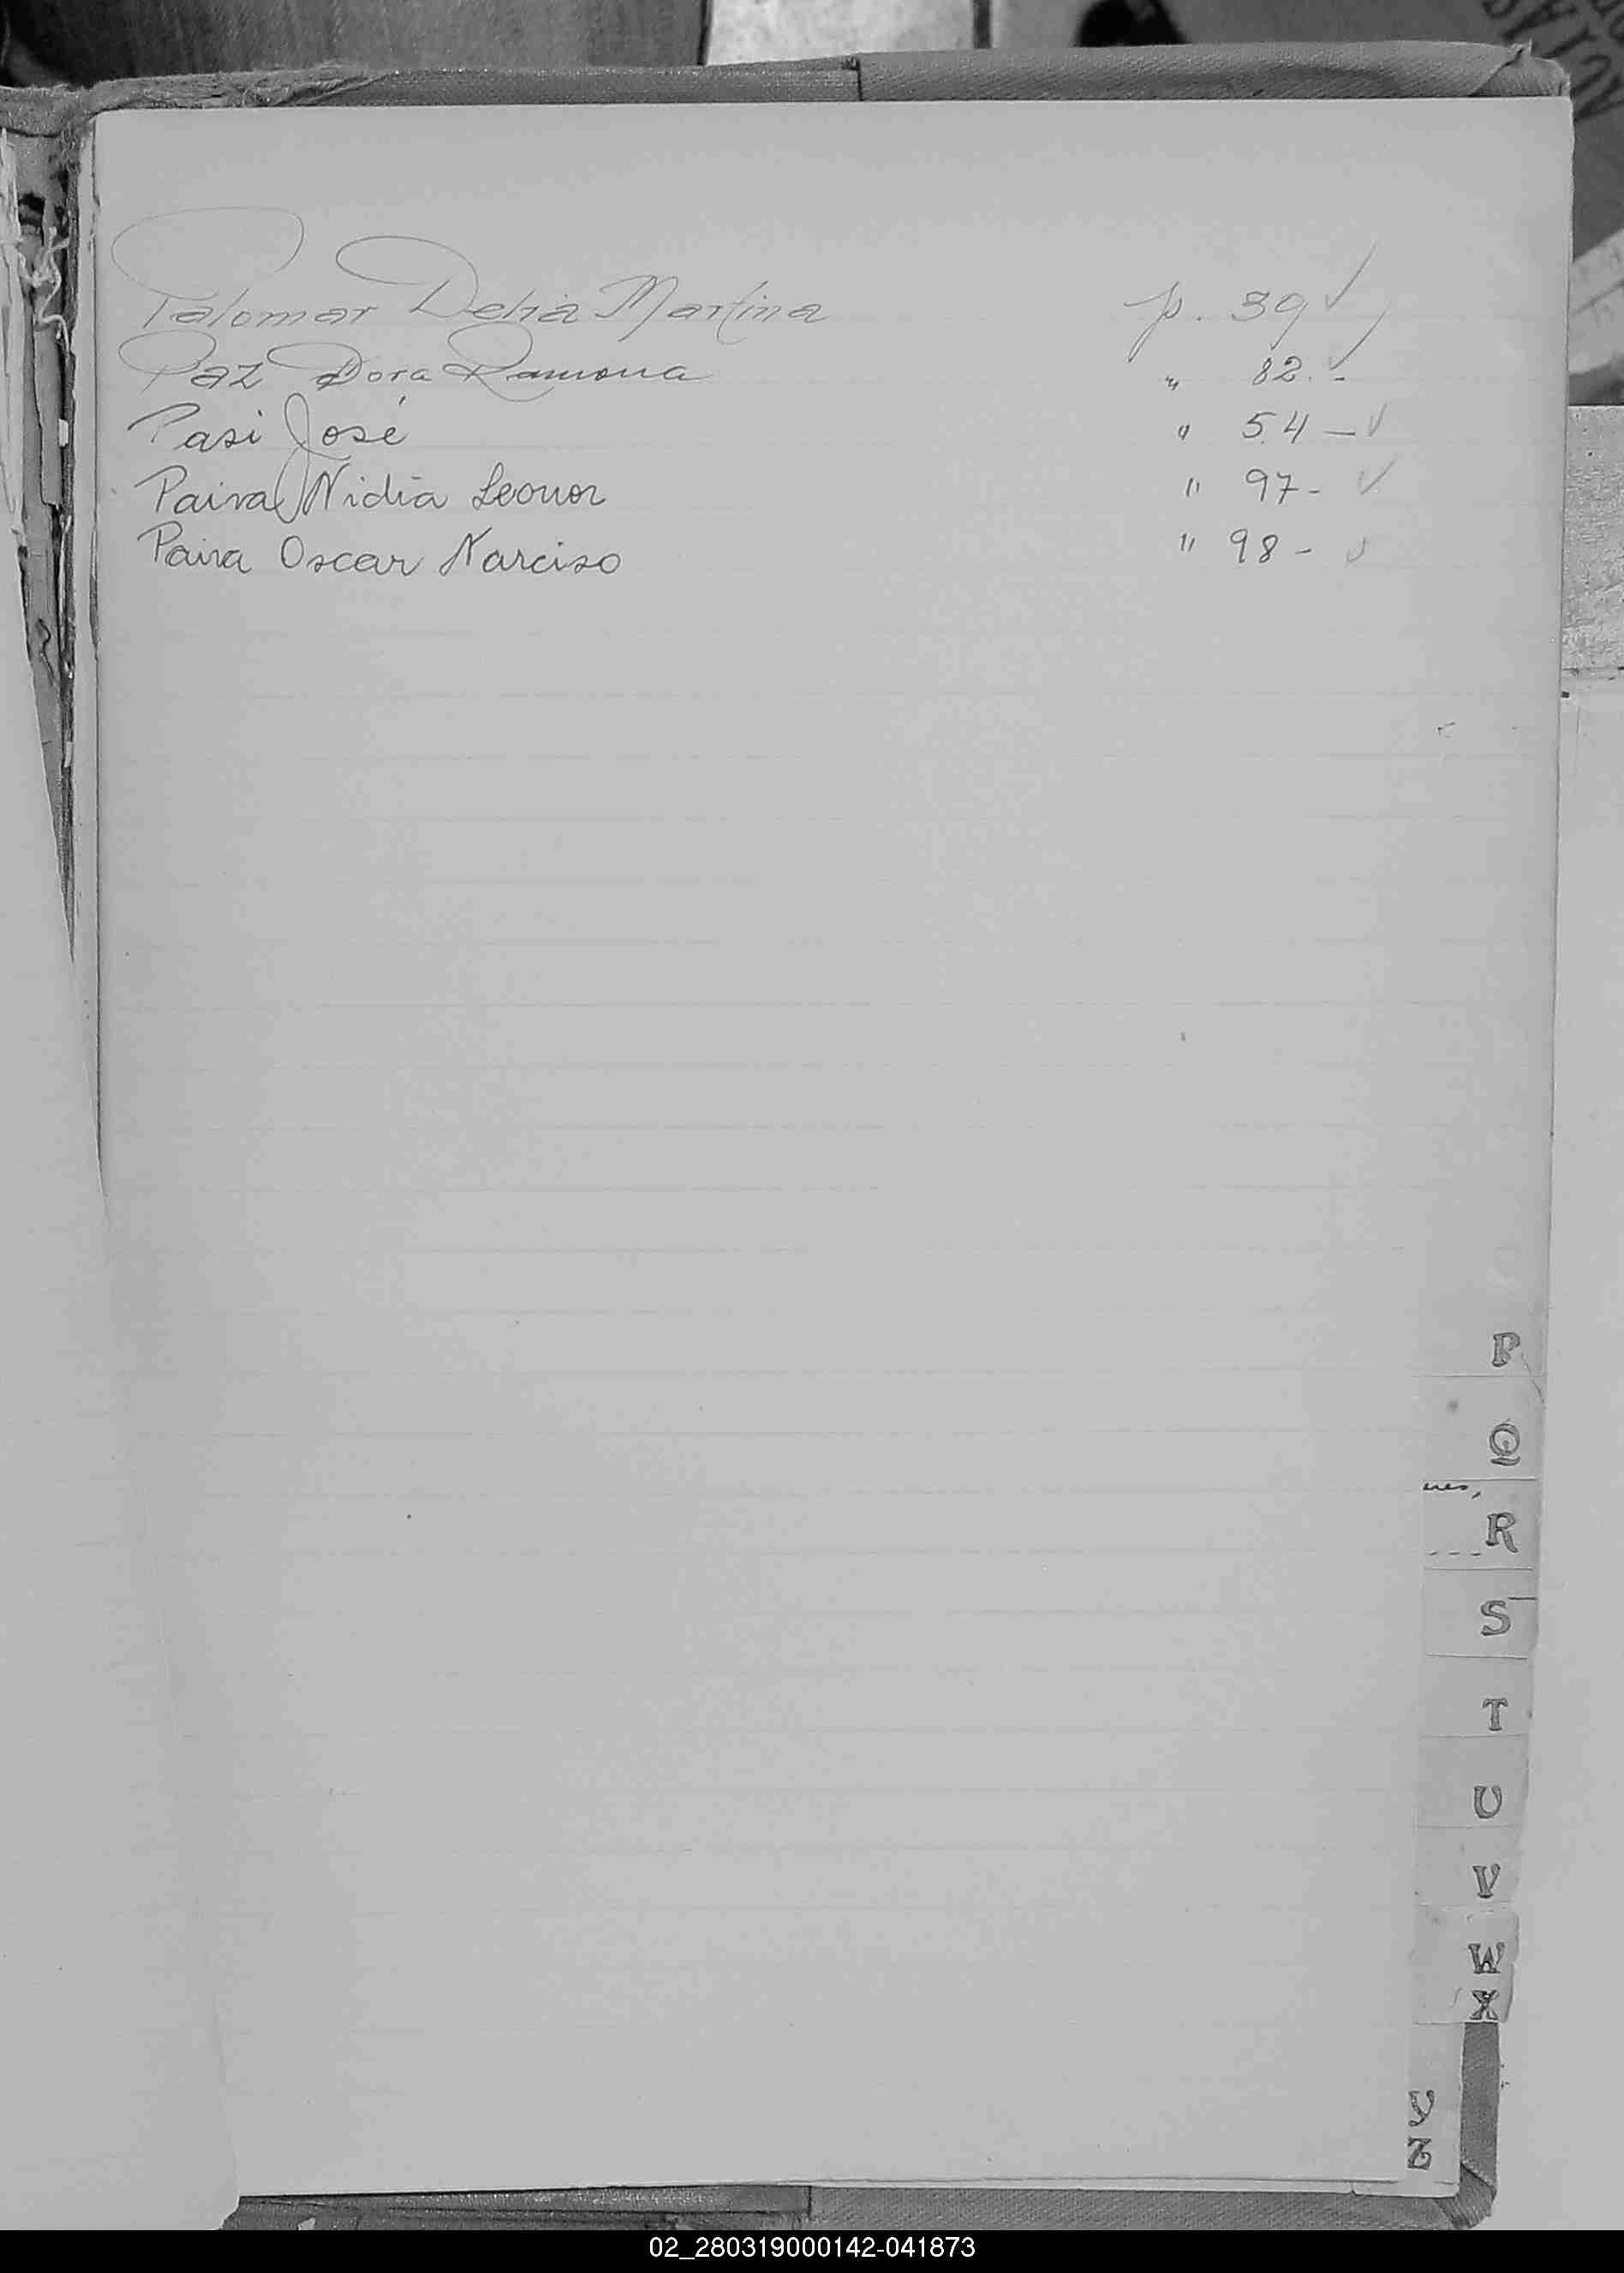 Palomar Delia Martina p. 39 ✓
Paz Dora Ramona " 82.- ✓
Pasi José " 54 - ✓
Paiva Nidia Leonor " 97 - ✓
Paiva Oscar Narciso " 98 - ✓
P
Q
R
S
T
U
V
W
X
Y
Z
02_280319000142-041873